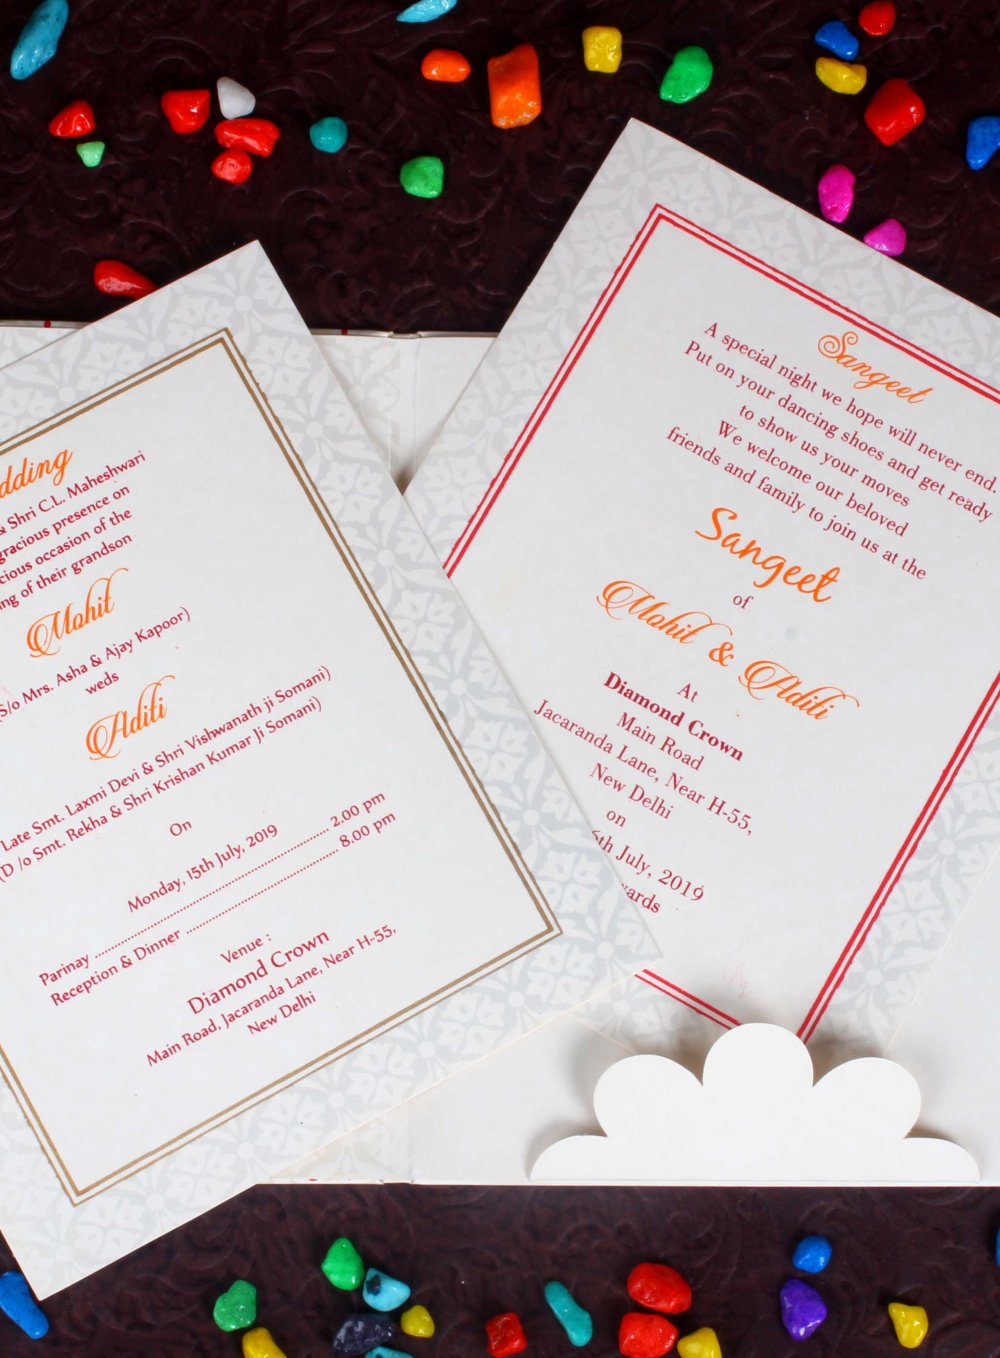 & Shri C.L. Maheshwari
gracious presence on
occasion of the
of their grandson
Mohit
(S/o Mrs. Asha & Ajay Kapoor)
weds
Aditi
Late Smt. Laxmi Devi & Shri Vishwanath ji Somani)
(D /o Smt. Rekha & Shri Krishan Kumar Ji Somani)
On
Monday, 15th July, 2019
Parinay ........................................................ 2.00 pm
Reception & Dinner ..................................... 8.00 pm
Venue :
Diamond Crown
Main Road, Jacaranda Lane, Near H-55,
New Delhi
Sangeet
A special night we hope will never end.
Put on your dancing shoes and get ready
to show us your moves
We welcome our beloved
friends and family to join us at the
Sangeet
of
Mohit & Aditi
At
Diamond Crown
Main Road
Jacaranda Lane, Near H-55,
New Delhi
on
July, 2019